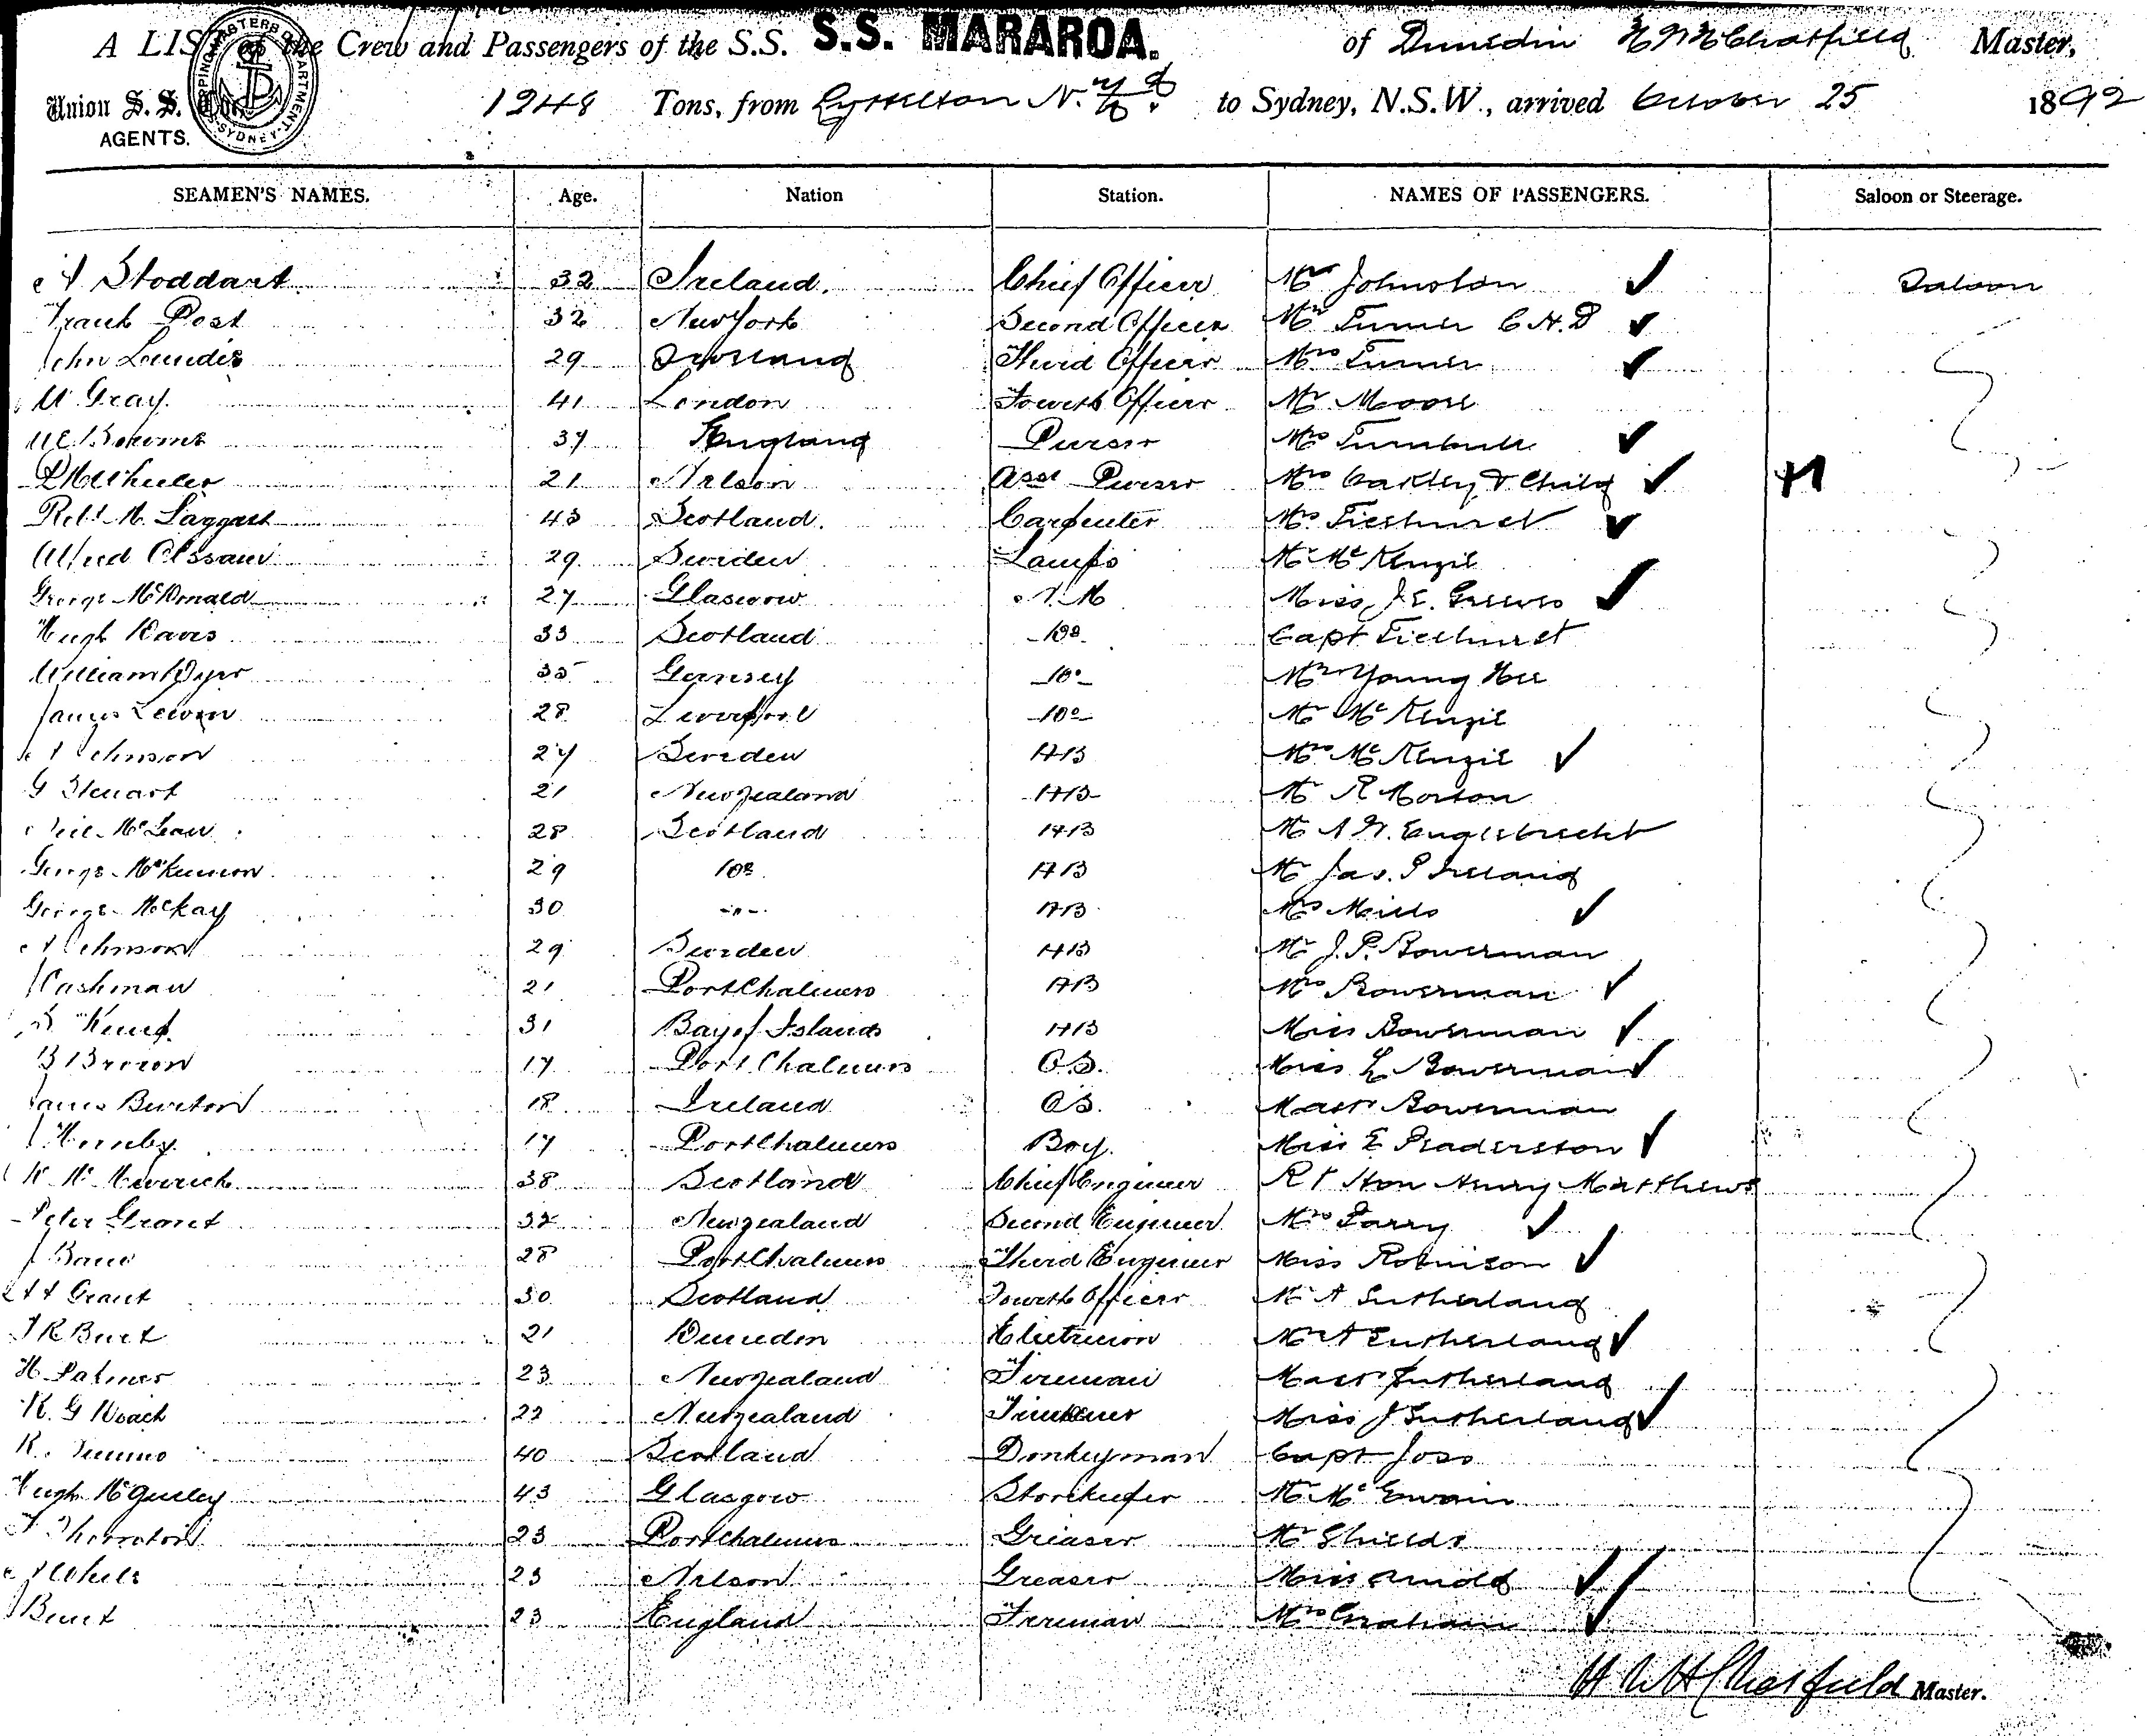 A LIST of the Crew and Passengers of the S.S. S.S. MARAROA. of Dunedin Chatfield Master,
Union S. S. Co. 1248 Tons, from Lyttelton N.Z. to Sydney, N.S.W., arrived October 25 1892
AGENTS.
SEAMEN'S NAMES. Age. Nation Station. NAMES OF PASSENGERS. Saloon or Steerage.
A Stoddart 32 Ireland. Chief Officer Mr Johnston Saloon
Frank Post 32 New York Second Officer Mr Turner C.H.D
John 29 Scotland Third Officer Mrs Turner
W Gray 41 London Fourth Officer Mr Moore
37 England Purser Mrs Turnbull
Wheeler 21 Nelson Asst Purser Mrs Oakley & Child
Robt M. Taggart 43 Scotland. Carpenter Mrs Ticehurst
Alfred 29 Sweden Lamps Mr McKenzie
George McDonald 27 Glasgow Miss J. E. Greeves
Hugh Davis 33 Scotland Do Capt Ticehurst
William Dyer 35 Gernsey Do Mr Young Hee
James Lewin 28 Liverpool Do Mr McKenzie
A Johnson 27 Sweden AB Mrs McKenzie
G Steuart 21 New Zealand AB Mr R Morton
Neil McLean 28 Scotland AB Mr A. W. Englebrecht
George McKinnon 29 Do AB Mr Jas. P Ireland
George McKay 30 -"- AB Mrs Mills
A Johnson 29 Sweden AB Mr J. P. Bowerman
J Cashman 21 Port Chalmers AB Mrs Bowerman
31 Bay of Islands AB Miss Bowerman
B Brown 17 Port Chalmers O.S. Miss L Bowerman
James Burton 18 Ireland O.S. Mastr Bowerman
J Hornby 17 Port Chalmers Boy. Miss E
38 Scotland Chief Engineer Rt Hon Henry Matthews
Peter Grant 32 New Zealand Second Engineer Mrs Parry
J 28 Port Chalmers Third Engineer Miss Robinson
Grant 30 Scotland Fourth Officer Mr A Sutherland
Burt 21 Dunedin Electricion Mrs A Sutherland
H. Palmer 23 New Zealand Fireman Mastr Sutherland
K. G Roach 22 New Zealand Miss J Sutherland
40 Scotland Donkeyman Capt Joss
Hugh 43 Glasgow Storekeeper Mr
Thornton 23 Port Chalmers Greaser Mr Shields
23 Nelson Greaser Miss Arnold
Burt 23 England Fireman Mrs Graham
Chatfield Master.